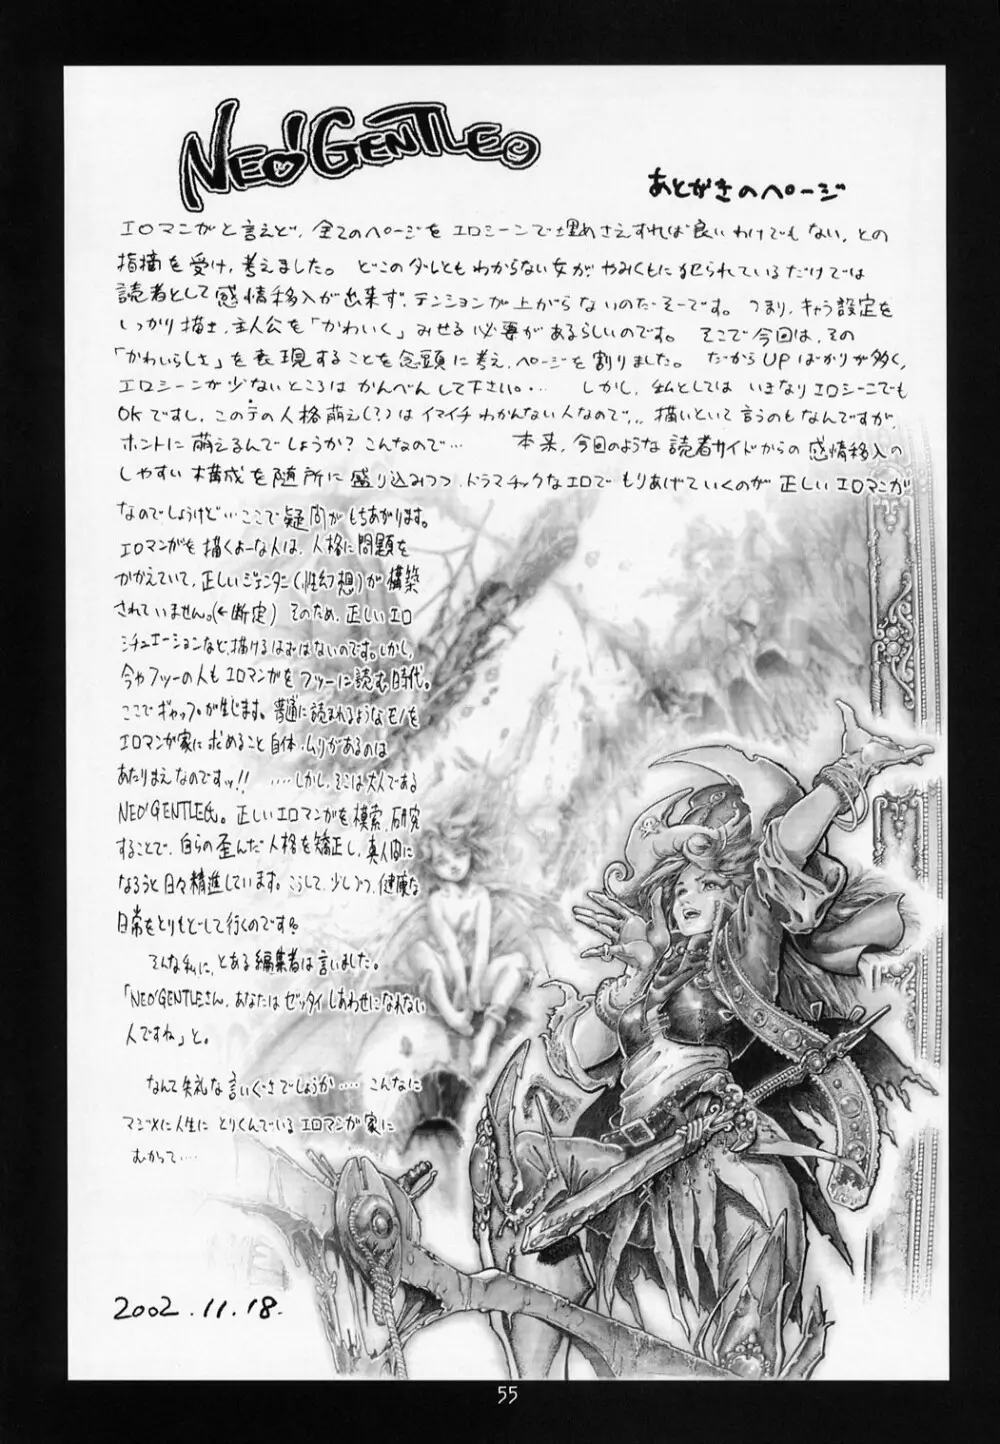 NEO'GENTLE
あとがきのページ
エロマンガと言えど、全てのページをエロシーンで埋めさえすれば良いわけでもない、との
指摘を受け、考えました。 どこのダレともわからない女がやみくもに犯られているだけでは
読者として感情移入が出来ず、テンションが上がらないのだそーです。 つまり、キャラ設定を
しっかり描き、主人公を「かわいく」みせる必要があるらしいのです。 そこで今回は、その
「かわいらしさ」を表現することを念頭に考え、ページを割りました。 だからUPばかりが多く、
エロシーンが少ないところはかんべんして下さい。・・・ しかし、私としてはいきなりエロシーンでも
OKですし、このテの人格萌え(?)はイマイチわかんない人なので、、、描いといて言うのもなんですが、
ホントに萌えるんでしょうか？こんなので… 本来、今回のような読者サイドからの感情移入の
しやすい構成を随所に盛り込みつつ、ドラマチックなエロでもりあげていくのが正しいエロマンガ
なのでしょうけど…ここで疑問がもちあがります。
エロマンガを描くよーな人は、人格に問題を
かかえていて、正しいジェンダー(性幻想)が構築
されていません。(←断定) そのため、正しいエロ
シチュエーションなど、描けるはずはないのです。しかし、
今やフツーの人もエロマンガをフツーに読む時代。
ここでギャップが生じます。普通に読まれるようなモノを
エロマンガ家に求めること自体、ムリがあるのは
あたりまえなのですッ!! ・・・・しかし、そこは大人である
NEO'GENTLE氏。正しいエロマンガを模索、研究
することで、自らの歪んだ人格を矯正し、真人間に
なろうと日々精進しています。こうして、少しづつ、健康な
日常をとりもどして行くのです。
そんな私に、とある編集者は言いました。
「NEO'GENTLEさん、あなたはゼッタイしあわせになれない
人ですね」と。
なんて失礼な言いぐさでしょうか・・・・ こんなに
マジメに人生にとりくんでいるエロマンガ家に
むかって・・・・
2002.11.18.
55